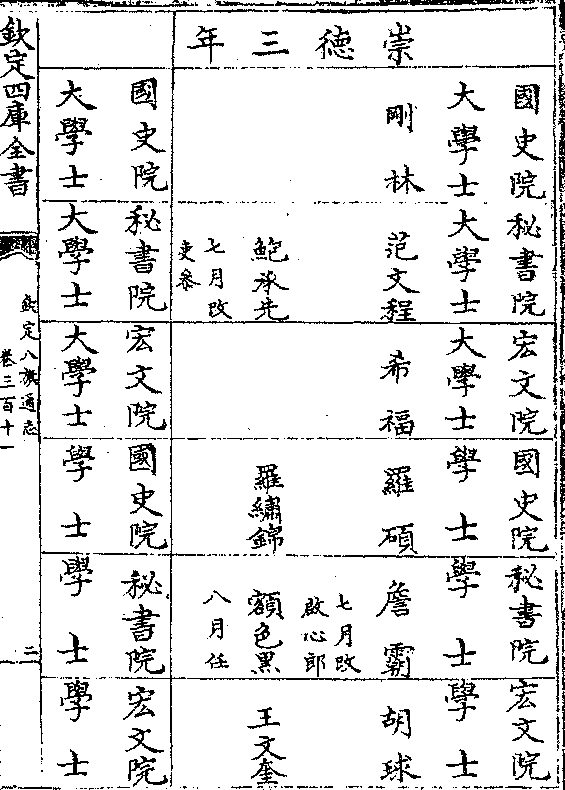 崇德三年
國史院大學士
剛林
國史院大學士
秘書院大學士
范文程
鮑承先
七月改吏叅
秘書院大學士
宏文院大學士
希福
宏文院大學士
國史院學士
羅碩
羅繡錦
國史院學士
秘書院學士
詹霸
七月改啟心郎
額色黑
八月任
秘書院學士
宏文院學士
胡球
王文奎
宏文院學士
欽定四庫全書
欽定八旗通志
卷三百十一
二